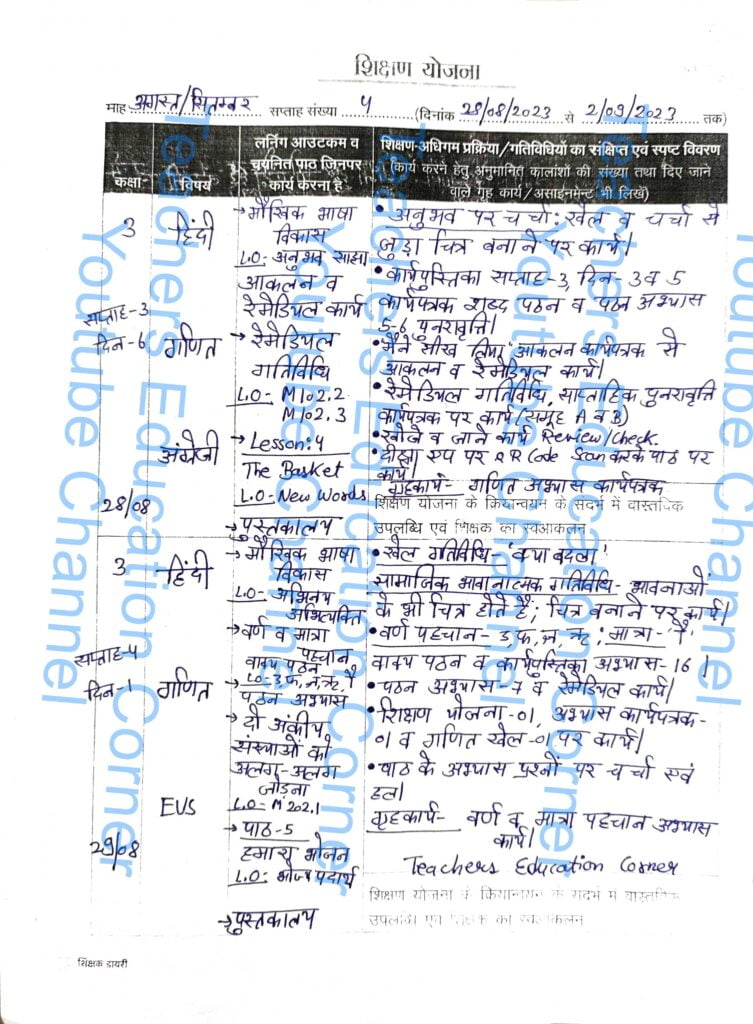 शिक्षण योजना
माह अगस्त/सितम्बर सप्ताह संख्या 4 (दिनांक 28/08/2023 से 2/09/2023 तक)
कक्षा
विषय
लर्निंग आउटकम व
चयनित पाठ जिनपर
कार्य करना है
शिक्षण-अधिगम प्रक्रिया/गतिविधियों का संक्षिप्त एवं स्पष्ट विवरण
(कार्य करने हेतु अनुमानित कालांशों की संख्या तथा दिए जाने
वाले गृह कार्य/असाइनमेन्ट भी लिखें)
3
सप्ताह-3
दिन-6
28/08
हिंदी
गणित
अंग्रेजी
→ मौखिक भाषा
विकास
L.O- अनुभव साझा
आकलन व
रेमेडियल कार्य
→ रेमेडियल
गतिविधि
L.O- M102.2
M102.3
→ Lesson:4
The Basket
L.O- New Words
→ पुस्तकालय
• अनुभव पर चर्चा: खेल व चर्चा से
जुड़ा चित्र बनाने पर कार्य।
• कार्यपुस्तिका सप्ताह-3, दिन- 3 व 5
कार्यपत्रक शब्द पठन व पठन अभ्यास
5-6 पुनरावृत्ति।
• मैंने सीख लिया, आकलन कार्यपत्रक से
आकलन व रेमेडियल कार्य।
• रेमेडियल गतिविधि, साप्ताहिक पुनरावृत्ति
कार्यपत्रक पर कार्य (समूह A व B)
• खोजें व जाने कार्य Review/Check.
• दीक्षा एप पर QR Code Scan करके पाठ पर
कार्य।
गृहकार्य- गणित अभ्यास कार्यपत्रक
शिक्षण योजना के क्रियान्वयन के सदर्भ में वास्तविक
उपलब्धि एवं शिक्षक का स्वआकलन
3
सप्ताह-4
दिन-1
29/08
हिंदी
गणित
EVS
→ मौखिक भाषा
विकास
L.O- अभिनय
अभिव्यक्ति
→ वर्ण व मात्रा
पहचान
वाक्य पठन
पठन अभ्यास
→ दो अंकीय
संख्याओं को
अलग-अलग
जोड़ना
L.O- M202.1
→ पाठ-5
हमारा भोजन
L.O- भोज्य पदार्थ
→ पुस्तकालय
• खेल गतिविधि- 'क्या बदला'
सामाजिक भावानात्मक गतिविधि- भावनाओं
के भी चित्र होते हैं; चित्र बनाने पर कार्य।
• वर्ण पहचान- मात्रा-
वाक्य पठन व कार्यपुस्तिका अभ्यास-16।
• पठन अभ्यास-7 व रेमेडियल कार्य।
• शिक्षण योजना-01, अभ्यास कार्यपत्रक-
01 व गणित खेल-01 पर कार्य।
• पाठ के अभ्यास प्रश्नों पर चर्चा एवं
हल।
गृहकार्य- वर्ण व मात्रा पहचान अभ्यास
कार्य।
Teachers Education Corner
शिक्षण योजना के क्रियान्वयन के सदर्भ में वास्तविक
उपलब्धि एवं शिक्षक का स्वआकलन
शिक्षक डायरी
Teachers Education Corner
Youtube Channel
Teachers Education Corner
Youtube Channel
Teachers Education Corner
Youtube Channel